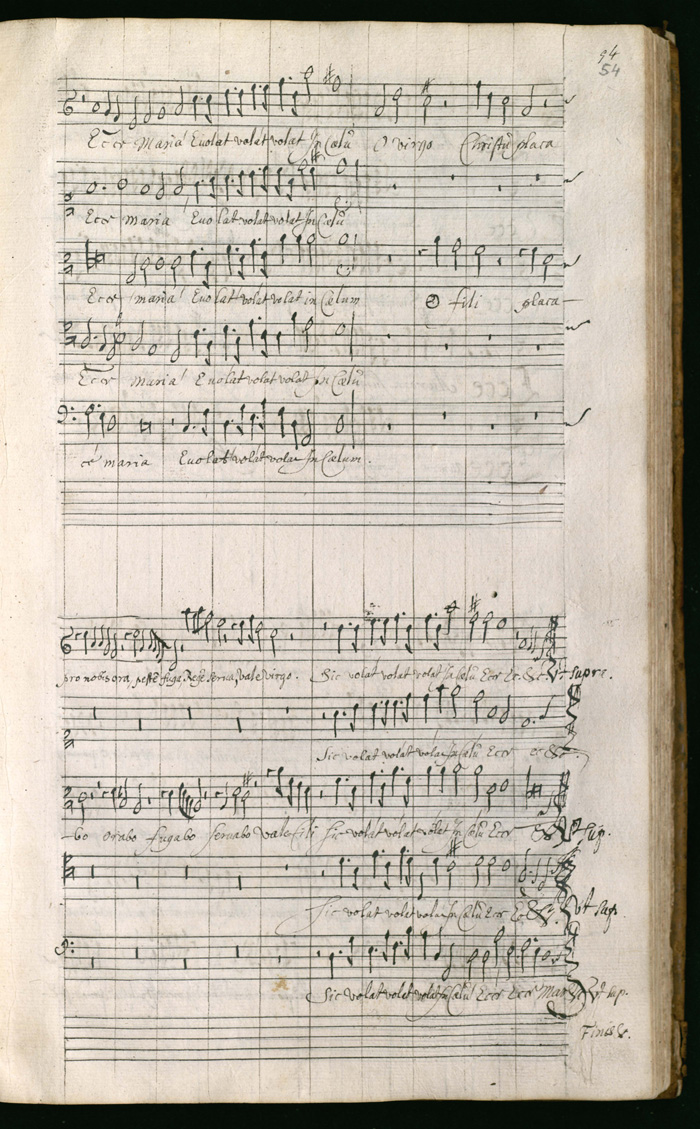 94
54
Ecce Maria Evolat volat volat In Cœlū O virgo Christū placa
Ecce maria Evolat volat volat In Cœlū
Ecce maria Evolat volat volat in Cœlum O fili placa
Ecce maria Evolat volat volat In Cœlū
ce maria Evolat volat volat In Cœlum.
pro nobis ora, peste fuga, Rege serva, vale virgo. Sic volat volat volat In Cœlū Ecce Ec. &c Vt supre.
Sic volat volat volat In Cœlū Ecce ec &c.
bo orabo fugabo servabo vale fili sic volat volat volat In Cœlū Ecce & Vt sup.
Sic volat volat volat In Cœlū Ecce Ec &c. vt sup
Sic volat volat volat In Cœlū Ecce Ecce Mar &c Vt sup.
Finis